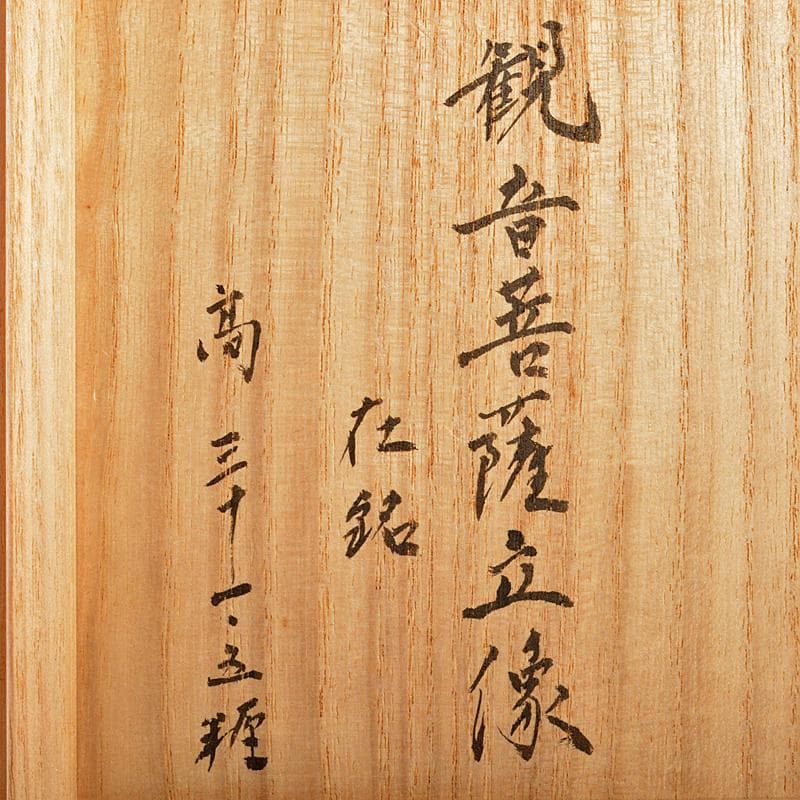 観音菩薩立像
在銘
高 三十一・五糎